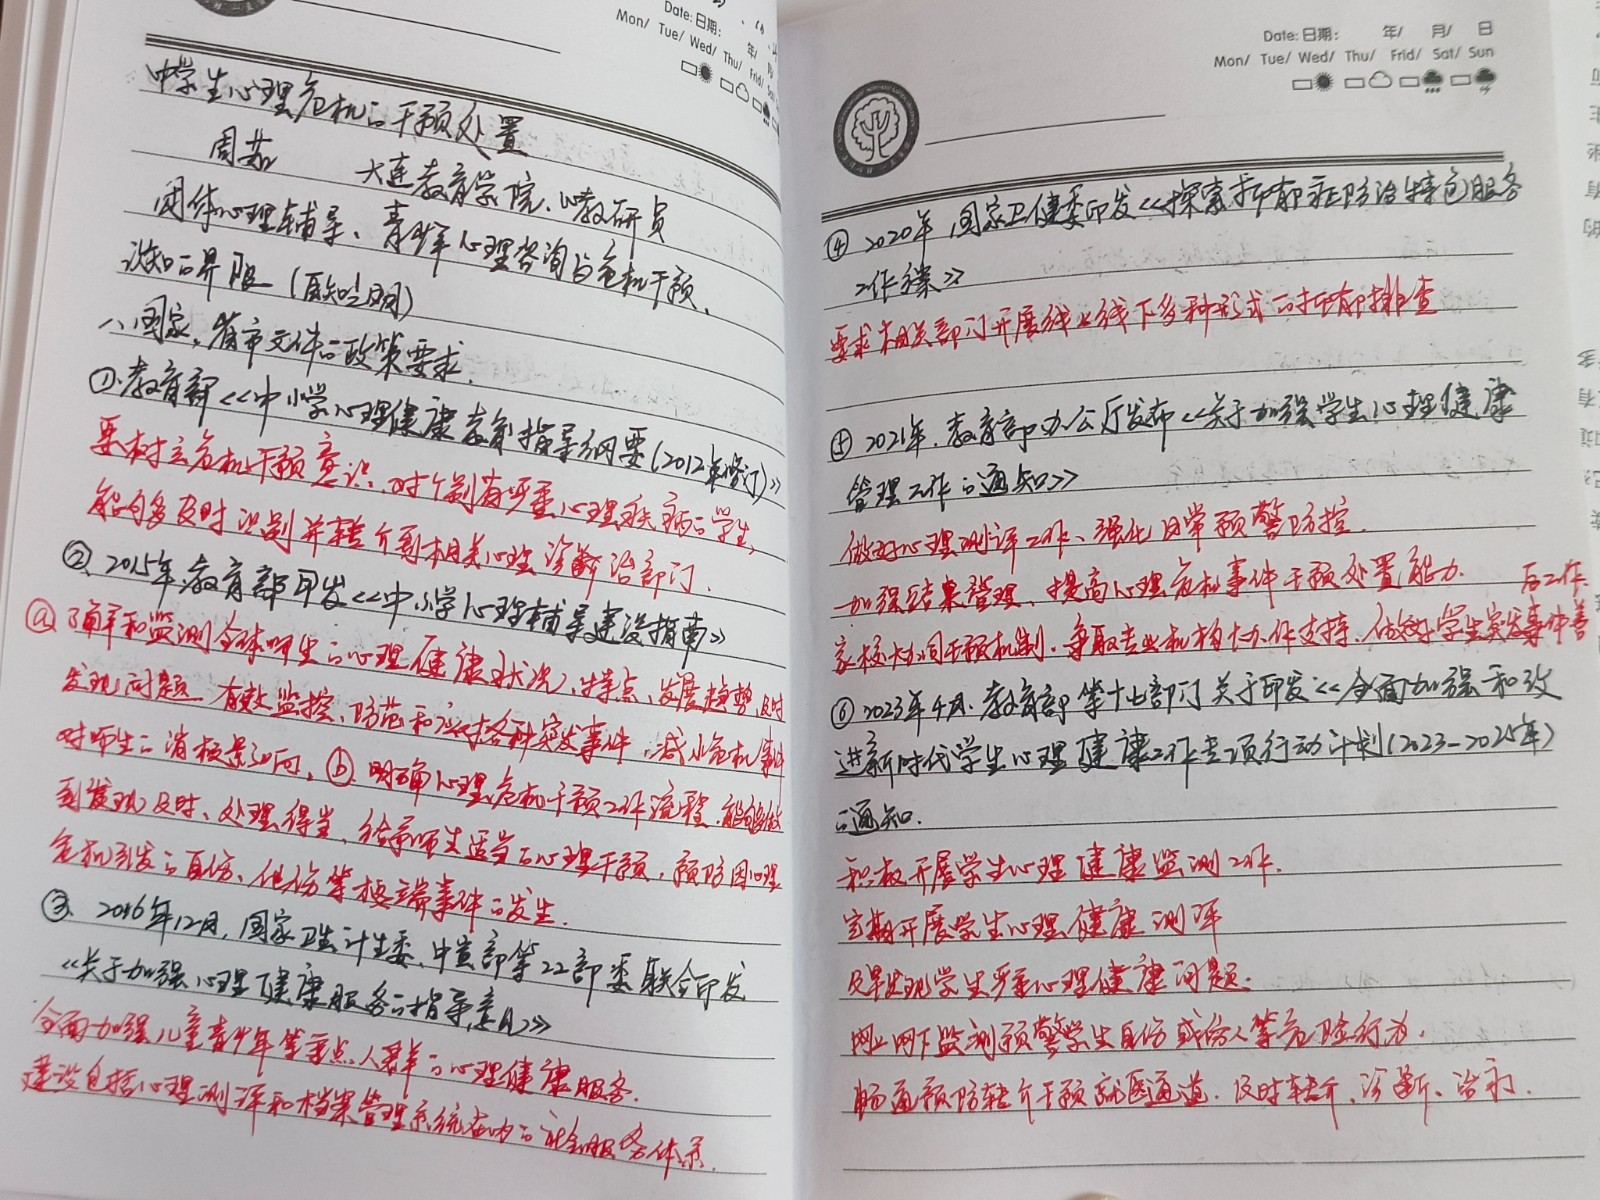 Date: 日期: 年/
Mon/ Tue/ Wed/ Thu/ Frid/
中学生心理危机的干预处置
周茹 大连教育学院、心教研员
团体心理辅导、青少年心理咨询与危机干预、
认知的界限(
一、国家、省市文件的政策要求.
①、教育部《中小学心理健康教育指导纲要(2012年修订)》
要树立危机干预意识,对个别有严重心理疾病的学生,
能够及时识别并转介到相关心理诊断治部门.
②、2015年教育部印发《中小学心理辅导建设指南》
ⓐ.了解和监测全体师生的心理健康状况、特点、发展趋势,及时
发现问题 有效监控、防范和应对各种突发事件,减小危机事件
对师生的消极影响. ⓑ.明确心理危机干预工作流程,能够做
到发现及时、处理得当,给予师生适当的心理干预,预防因心理
危机引发的自伤、他伤等极端事件的发生.
③、2016年12月,国家卫生计生委、中宣部等22部委联合印发
《关于加强心理健康服务的指导意见》
全面加强儿童青少年等重点人群的心理健康服务.
建设包括心理测评和档案管理系统在内的社会服务体系.
Date: 日期: 年/ 月/ 日
Mon/ Tue/ Wed/ Thu/ Frid/ Sat/ Sun
④ 2020年,国家卫健委印发《探索抑郁症防治特色服务
工作方案》
要求相关部门开展线上线下多种形式的抑郁排查
⑤ 2021年,教育部办公厅发布《关于加强学生心理健康
管理工作的通知》
做好心理测评工作、强化日常预警防控.
加强结果管理,提高心理危机事件干预处置能力. 后工作.
家校协同干预机制,争取专业机构协作支持,做好学生突发事件善
⑥ 2023年4月,教育部等十七部门关于印发《全面加强和改
进新时代学生心理健康工作专项行动计划(2023-2025年)
的通知.
积极开展学生心理健康监测工作.
定期开展学生心理健康测评
及早发现学生严重心理健康问题:
网上网下监测预警学生自伤或伤人等危险行为.
畅通预防转介干预就医通道,及时转介、诊断、治疗.